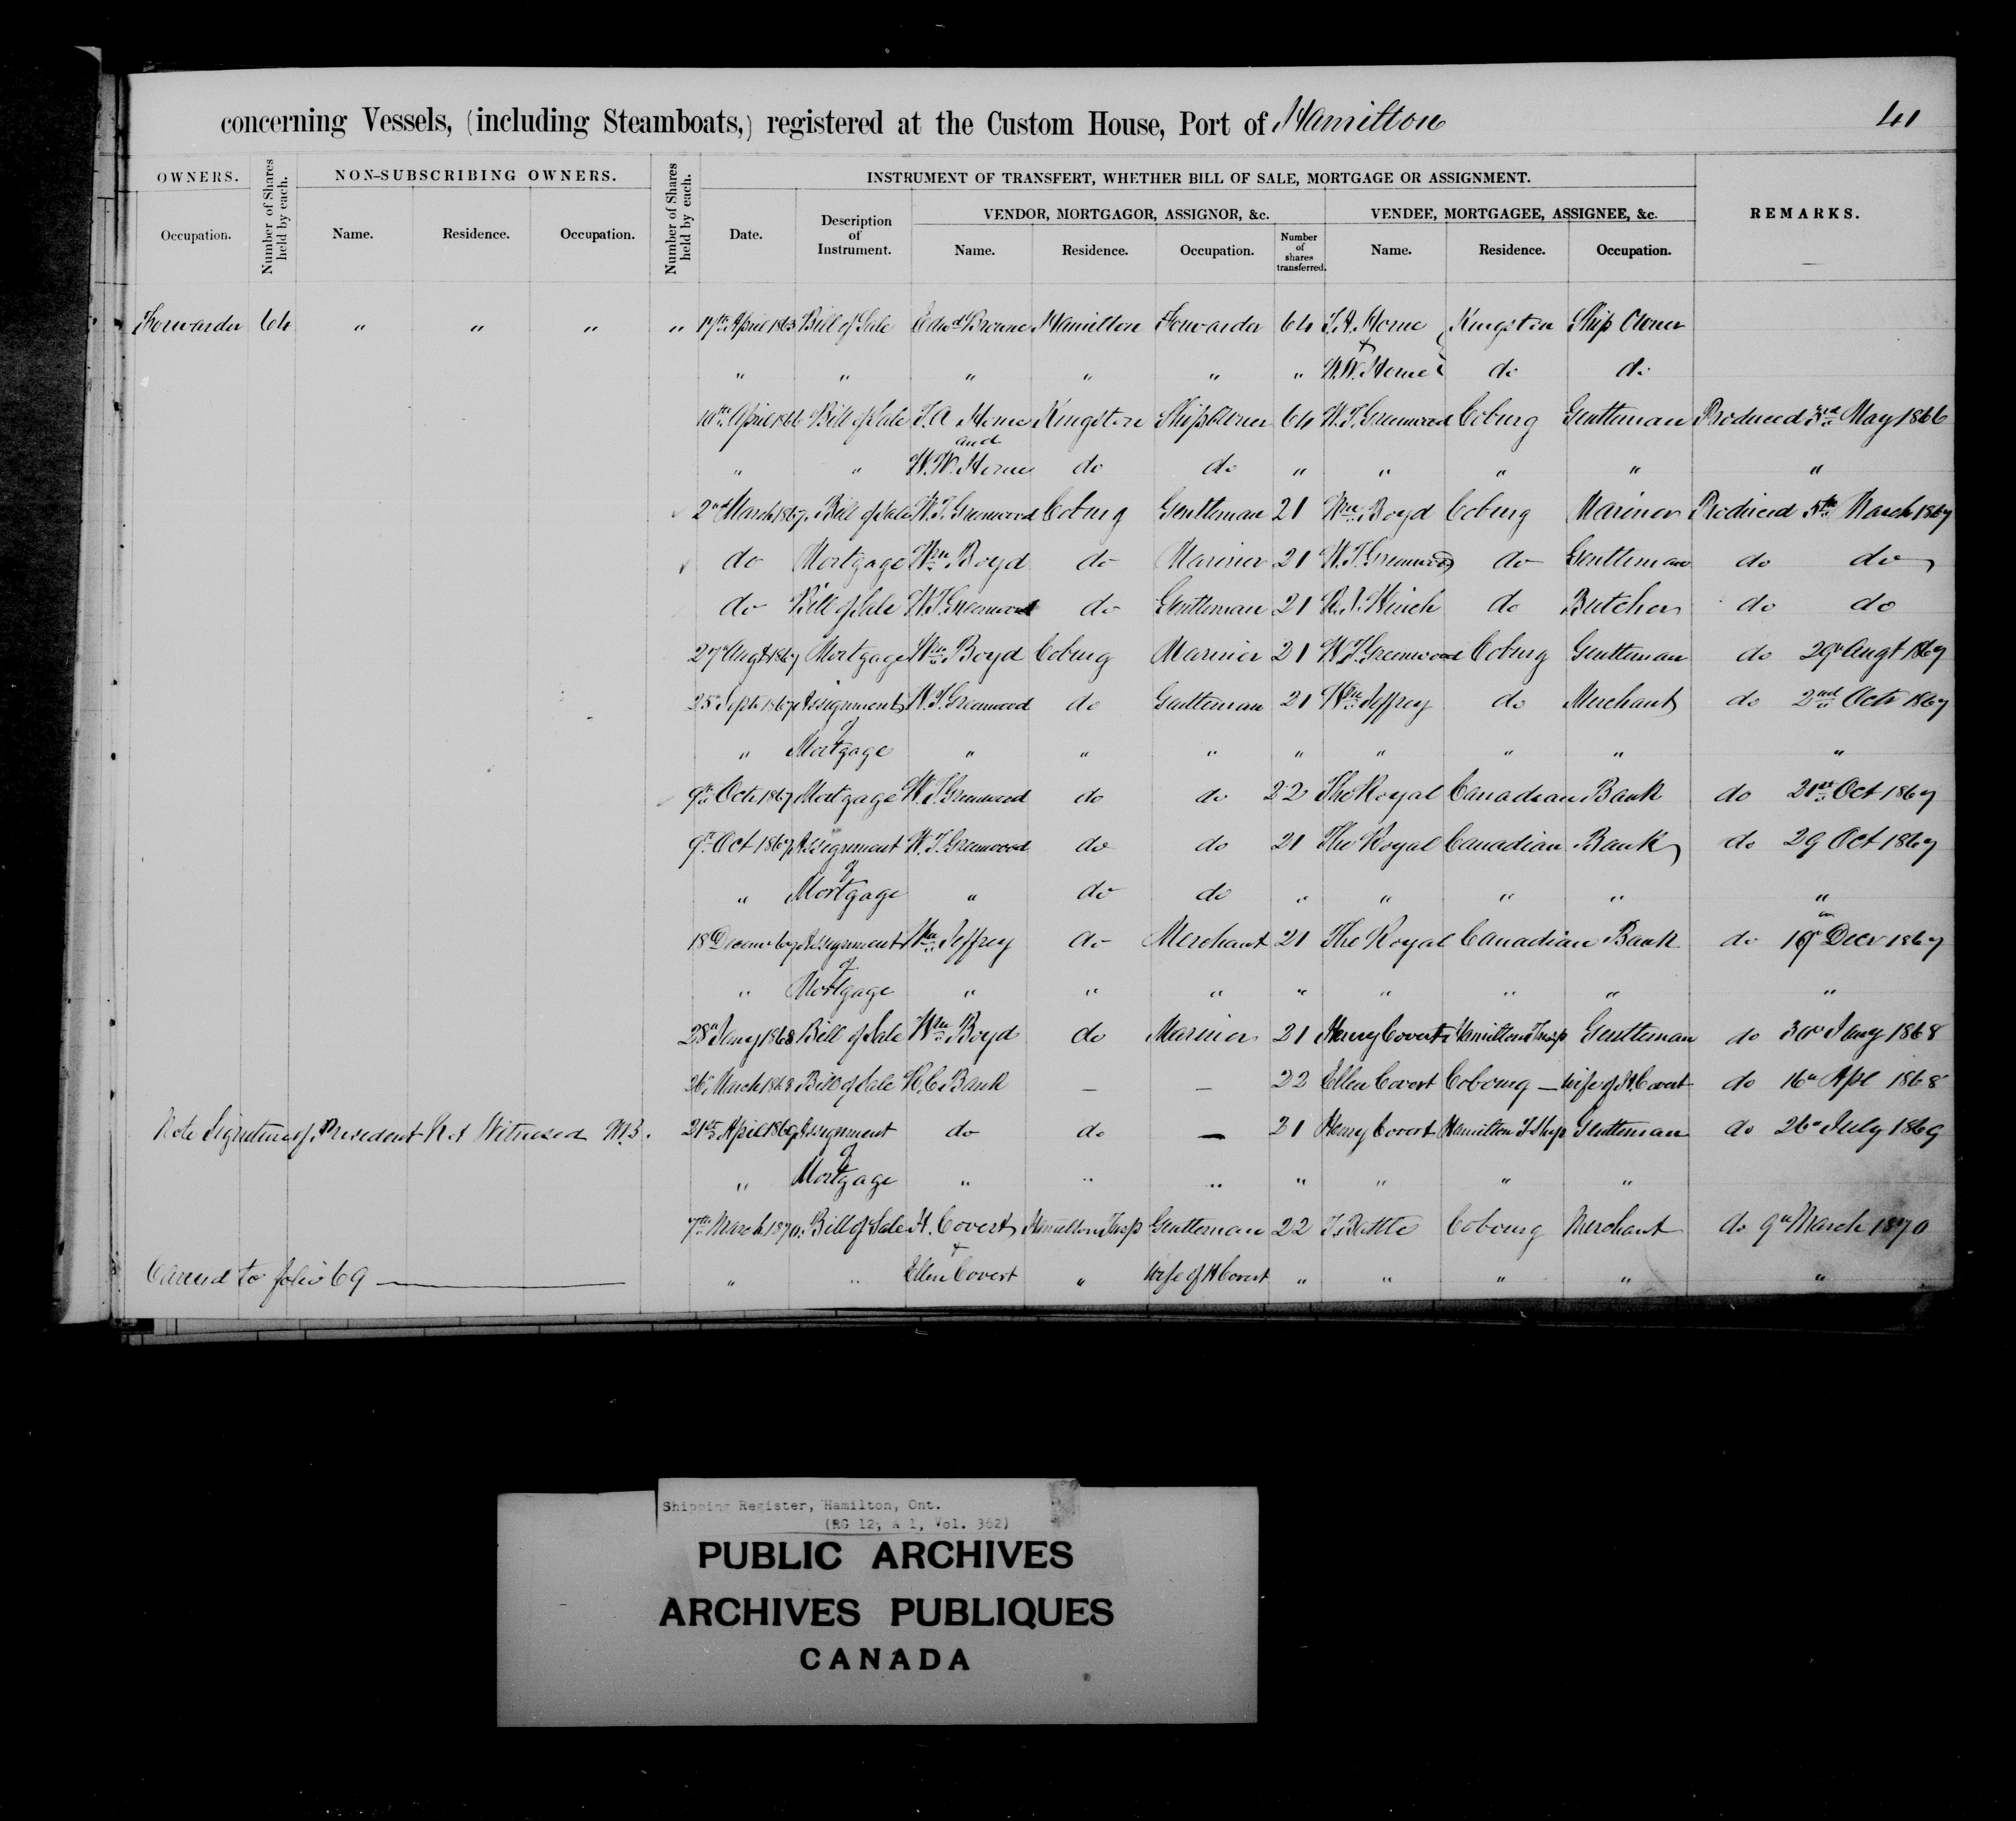 concerning Vessels, (including Steamboats,) registered at the Custom House, Port of Hamilton 41
OWNERS. Number of Shares held by each. NON-SUBSCRIBING OWNERS. Number of Shares held by each. INSTRUMENT OF TRANSFERT, WHETHER BILL OF SALE, MORTGAGE OR ASSIGNMENT. REMARKS.
VENDOR, MORTGAGOR, ASSIGNOR, &c. VENDEE, MORTGAGEE, ASSIGNEE, &c.
Occupation. Name. Residence. Occupation. Date. Description of Instrument. Name. Residence. Occupation. Number of shares transferred. Name. Residence. Occupation.
Forwarder 64 " " " " 17th April 1863 Bill of Sale Edwd Browne Hamilton Forwarder 64 T.A. Horne & Kingston Ship Owner
" " " " " " W.W. Horne do do
10th April 1866 Bill of Sale T.A Horne and Kingston Ship Owner 64 W.T. Greenwood Coburg Gentleman Produced 3rd May 1866
" " W.W. Horne do do " " " " "
2nd March 1867 Bill of Sale W.T. Greenwood Coburg Gentleman 21 Wm Boyd Coburg Mariner Produced 5th March 1867
do Mortgage Wm Boyd do Mariner 21 W.T. Greenwood do Gentleman do do
do Bill of Sale W.T. Greenwood do Gentleman 21 do Butcher do do
27 Augt 1867 Mortgage Wm Boyd Coburg Mariner 21 W.T. Greenwood Coburg Gentleman do 29 Augt 1867
25 Sept 1867 Assignment of W.T. Greenwood do Gentleman 21 Wm Jeffrey do Merchant do 2nd Octr 1867
" Mortgage " " " " " " " "
9th Octr 1867 Mortgage W.T. Greenwood do do 22 The Royal Canadian Bank do 21st Oct 1867
9th Oct 1867 Assignment of W.T. Greenwood do do 21 The Royal Canadian Bank do 29 Oct 1867
" Mortgage " do do " " " " "
18 Decemr 67 Assignment of Wm Jeffrey do Merchant 21 The Royal Canadian Bank do 19th Decr 1867
" Mortgage " " " " " " " "
28th Jany 1868 Bill of Sale Wm Boyd do Mariner 21 Henry Covert Hamilton Tnsp Gentleman do 30th Jany 1868
26th March 1868 Bill of Sale R.C. Bank – – 22 Ellen Covert Cobourg – wife of H. Covert do 16th Apl 1868
Note Signature of President Not Witnessed 21st April 1869 Assignment of do do – 21 Henry Covert Hamilton T.Ship Gentleman do 26th July 1869
" Mortgage " " " " " " "
7th March 1870. Bill of Sale H. Covert & Hamilton Tnsp Gentleman 22 Cobourg Merchant do 9th March 1870
Carried to folio 69 " " Ellen Covert " Wife of H Covert " " " " "
Shipping Register, Hamilton, Ont.
(RG 12, A 1, Vol. 362)
PUBLIC ARCHIVES
ARCHIVES PUBLIQUES
CANADA